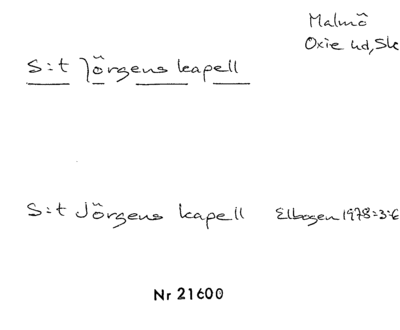 Malmö
Oxie hd, Sk
S:t Jörgens kapell
S:t Jörgens kapell Elbogen 1978:3:6
Nr 21600